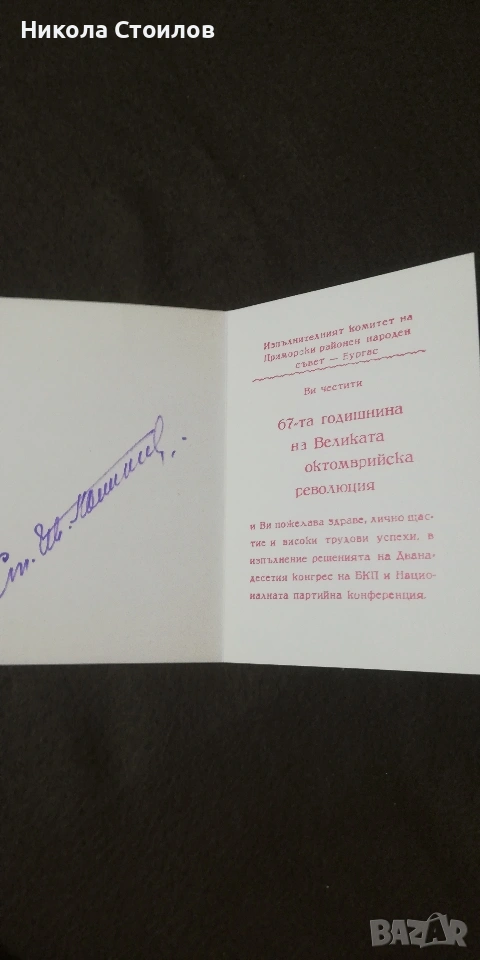 Никола Стоилов
Изпълнителният комитет на
Приморски районен народен
съвет — Бургас
Ви честити
67-та годишнина
на Великата
октомврийска
революция
и Ви пожелава здраве, лично щас-
тие и високи трудови успехи, в
изпълнение решенията на Двана-
десетия конгрес на БКП и Нацио-
налната партийна конференция.
BAZAR